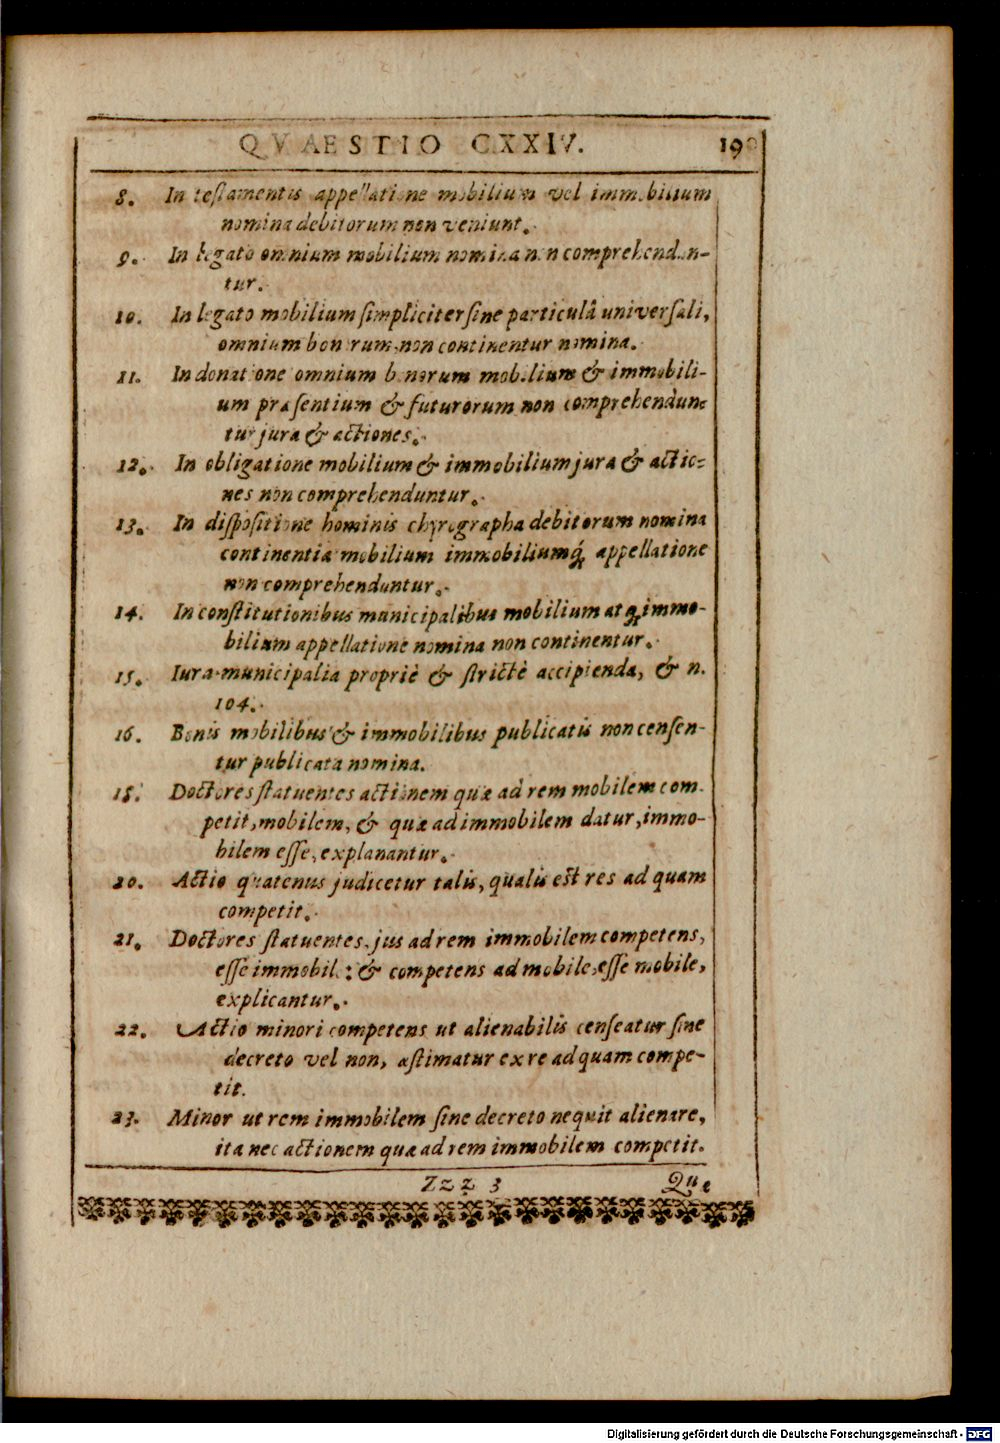 QVAESTIO CXXIV. 190
8. In testamentis appellatione mobilium vel immobilium
nomina debitorum non veniunt.
9. In legato omnium mobilium nomina non comprehendun-
tur.
10. In legato mobilium simpliciter sine particulâ universali,
omnium bonorum, non continentur nomina.
11. In donatione omnium bonorum mobilium & immobili-
um præsentium & futurorum non comprehendun
tur jura & actiones.
12. In obligatione mobilium & immobilium jura & actio-
nes non comprehenduntur.
13. In dispositione hominis chyrographa debitorum nomina
continentia mobilium immobiliumq́; appellatione
non comprehenduntur.
14. In constitutionibus municipalibus mobilium atq; immo-
bilium appellatione nomina non continentur.
15. Iura municipalia propriè & strictè accipienda, & n.
104.
16. Bonis mobilibus & immobilibus publicatis non censen-
tur publicata nomina.
15. Doctores statuentes actionem quæ ad rem mobilem com-
petit, mobilem, & quæ ad immobilem datur, immo-
bilem esse, explanantur.
20. Actio quatenus judicetur talis, qualis est res ad quam
competit.
21. Doctores statuentes, jus ad rem immobilem competens,
esse immobile: & competens ad mobile, esse mobile,
explicantur.
22. Actio minori competens ut alienabilis censeatur sine
decreto vel non, æstimatur ex re ad quam compe-
tit.
23. Minor ut rem immobilem sine decreto nequit alienare,
ita nec actionem quæ ad rem immobilem competit.
Zzz 3 Quę
Digitalisierung gefördert durch die Deutsche Forschungsgemeinschaft - DFG